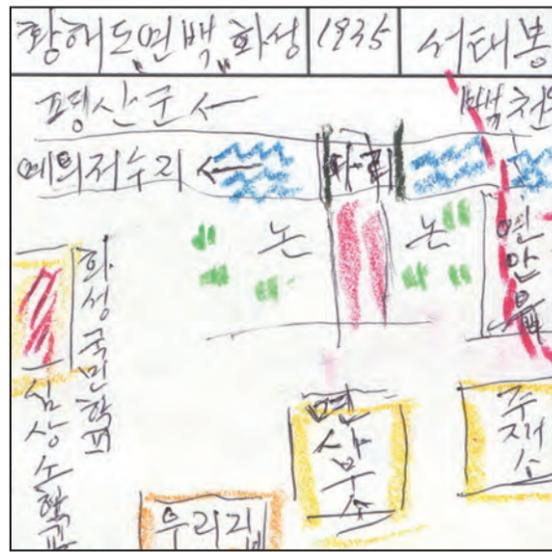 황해도 연백 화성 1935 서태봉
평산군 ←
백천
예의저수리 ← 다리
논 논
연안읍
화성 국민학교
심상소학교
면사무소
주재소
우리집